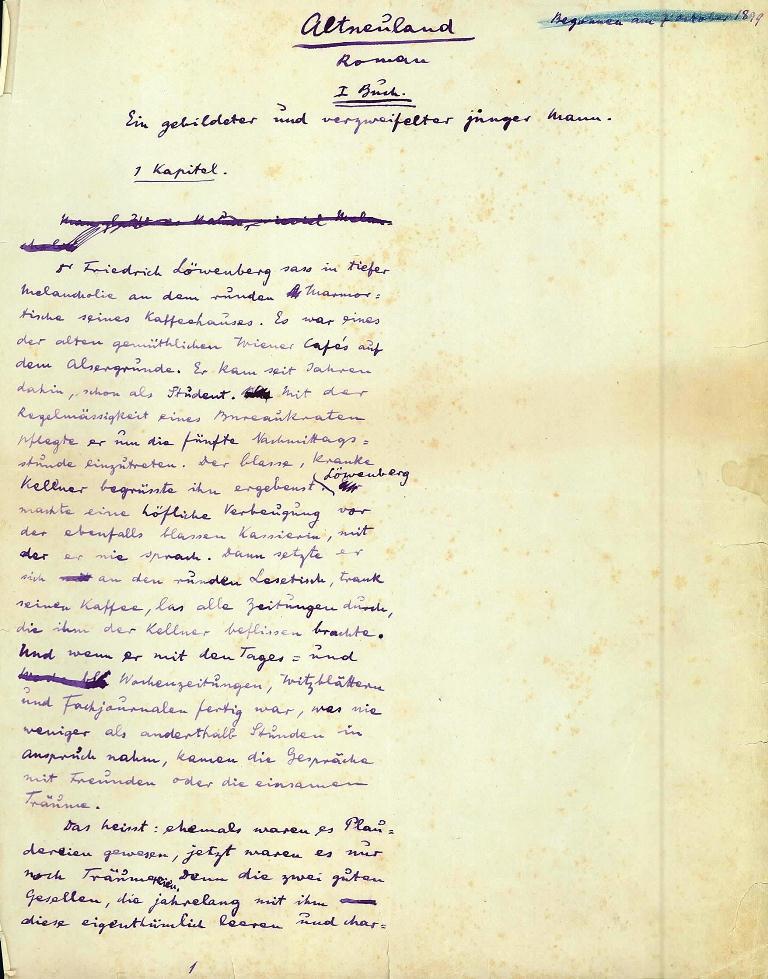 Altneuland
Begonnen am October 1899
Roman
I Buch.
Ein gebildeter und verzweifelter junger Mann.
1 Kapitel.
Dr Friedrich Löwenberg sass in tiefer
Melancholie an dem runden Marmor=
tische seines Kaffeehauses. Es war eines
der alten gemüthlichen Wiener Cafés auf
dem Alsergrunde. Er kam seit Jahren
dahin, schon als Student. Mit der
Regelmässigkeit eines Bureaukraten
pflegte er um die fünfte Nachmittags=
stunde einzutreten. Der blasse, kranke
Kellner begrüsste ihn ergebenst. Löwenberg
machte eine höfliche Verbeugung vor
der ebenfalls blassen Kassierin, mit
der er nie sprach. Dann setzte er
sich an den runden Lesetisch, trank
seinen Kaffee, las alle Zeitungen durch,
die ihm der Kellner beflissen brachte.
Und wenn er mit den Tages= und
Wochenzeitungen, Witzblättern
und Fachjournalen fertig war, was nie
weniger als anderthalb Stunden in
Anspruch nahm, kamen die Gespräche
mit Freunden oder die einsamen
Träume.
Das heisst: ehemals waren es Plau=
dereien gewesen, jetzt waren es nur
noch Träumereien, Denn die zwei guten
Gesellen, die jahrelang mit ihm
diese eigenthümlich leeren und char=
1